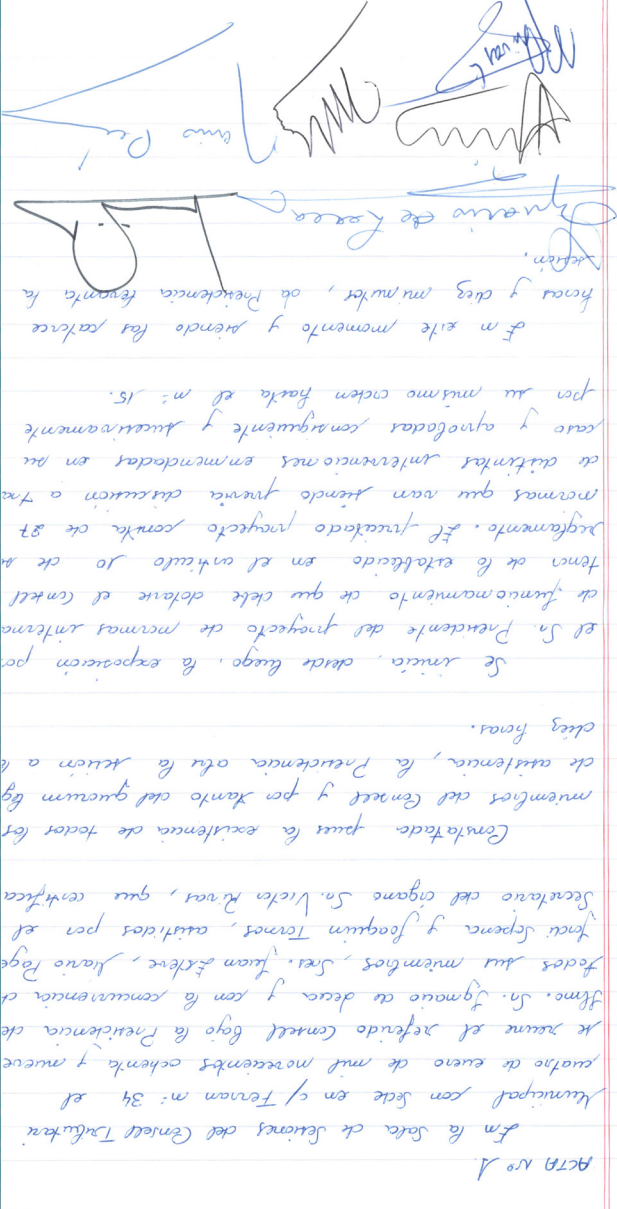 ACTA Nº 1
En la Sala de Sesiones del Consell Tributari
Municipal con sede en c/ Ferran nº 34 el
cuatro de enero de mil novecientos ochenta y nueve
se reune el referido Consell bajo la Presidencia de
Ilmo. Sr. Ignacio de Lecea y con la concurrencia d
todos sus miembros, Sres. Juan Esteve, Mario Page
Jordi Sopena y Joaquin Tornos, asistidos por el
Secretario del órgano Sr. Victor Rivas, que certifica
Constatada pues la existencia de todos los
miembros del Consell y por tanto del quorum leg
de asistencia, la Presidencia abre la sesión a l
diez horas.
Se inicia, desde luego, la exposición po
el Sr. Presidente del proyecto de normas interna
de funcionamiento de que debe dotarse el Consell
tenor de lo establecido en el artículo 10 de su
reglamento. El precitado proyecto consta de 27
normas que van siendo previa discusión a tra
de distintas intervenciones enmendadas en su
caso y aprobadas consiguiente y sucesivamente
por su mismo orden hasta el nº 15.
En este momento y siendo las catorce
horas y diez minutos, la Presidencia levanta la
sesión.
Ignacio de Lecea